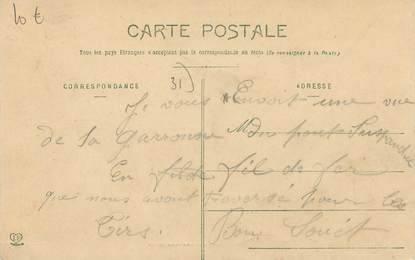 10 €
CARTE POSTALE
Tous les pays Etrangers n'acceptent pas la correspondance au recto (Se renseigner à la Poste)
CORRESPONDANCE
31)
ADRESSE
Je vous Envoit une vue
de la Garronne M du pont Suspendue
En fil de fer
que nous avont traversé pour les
Tirs. Bon